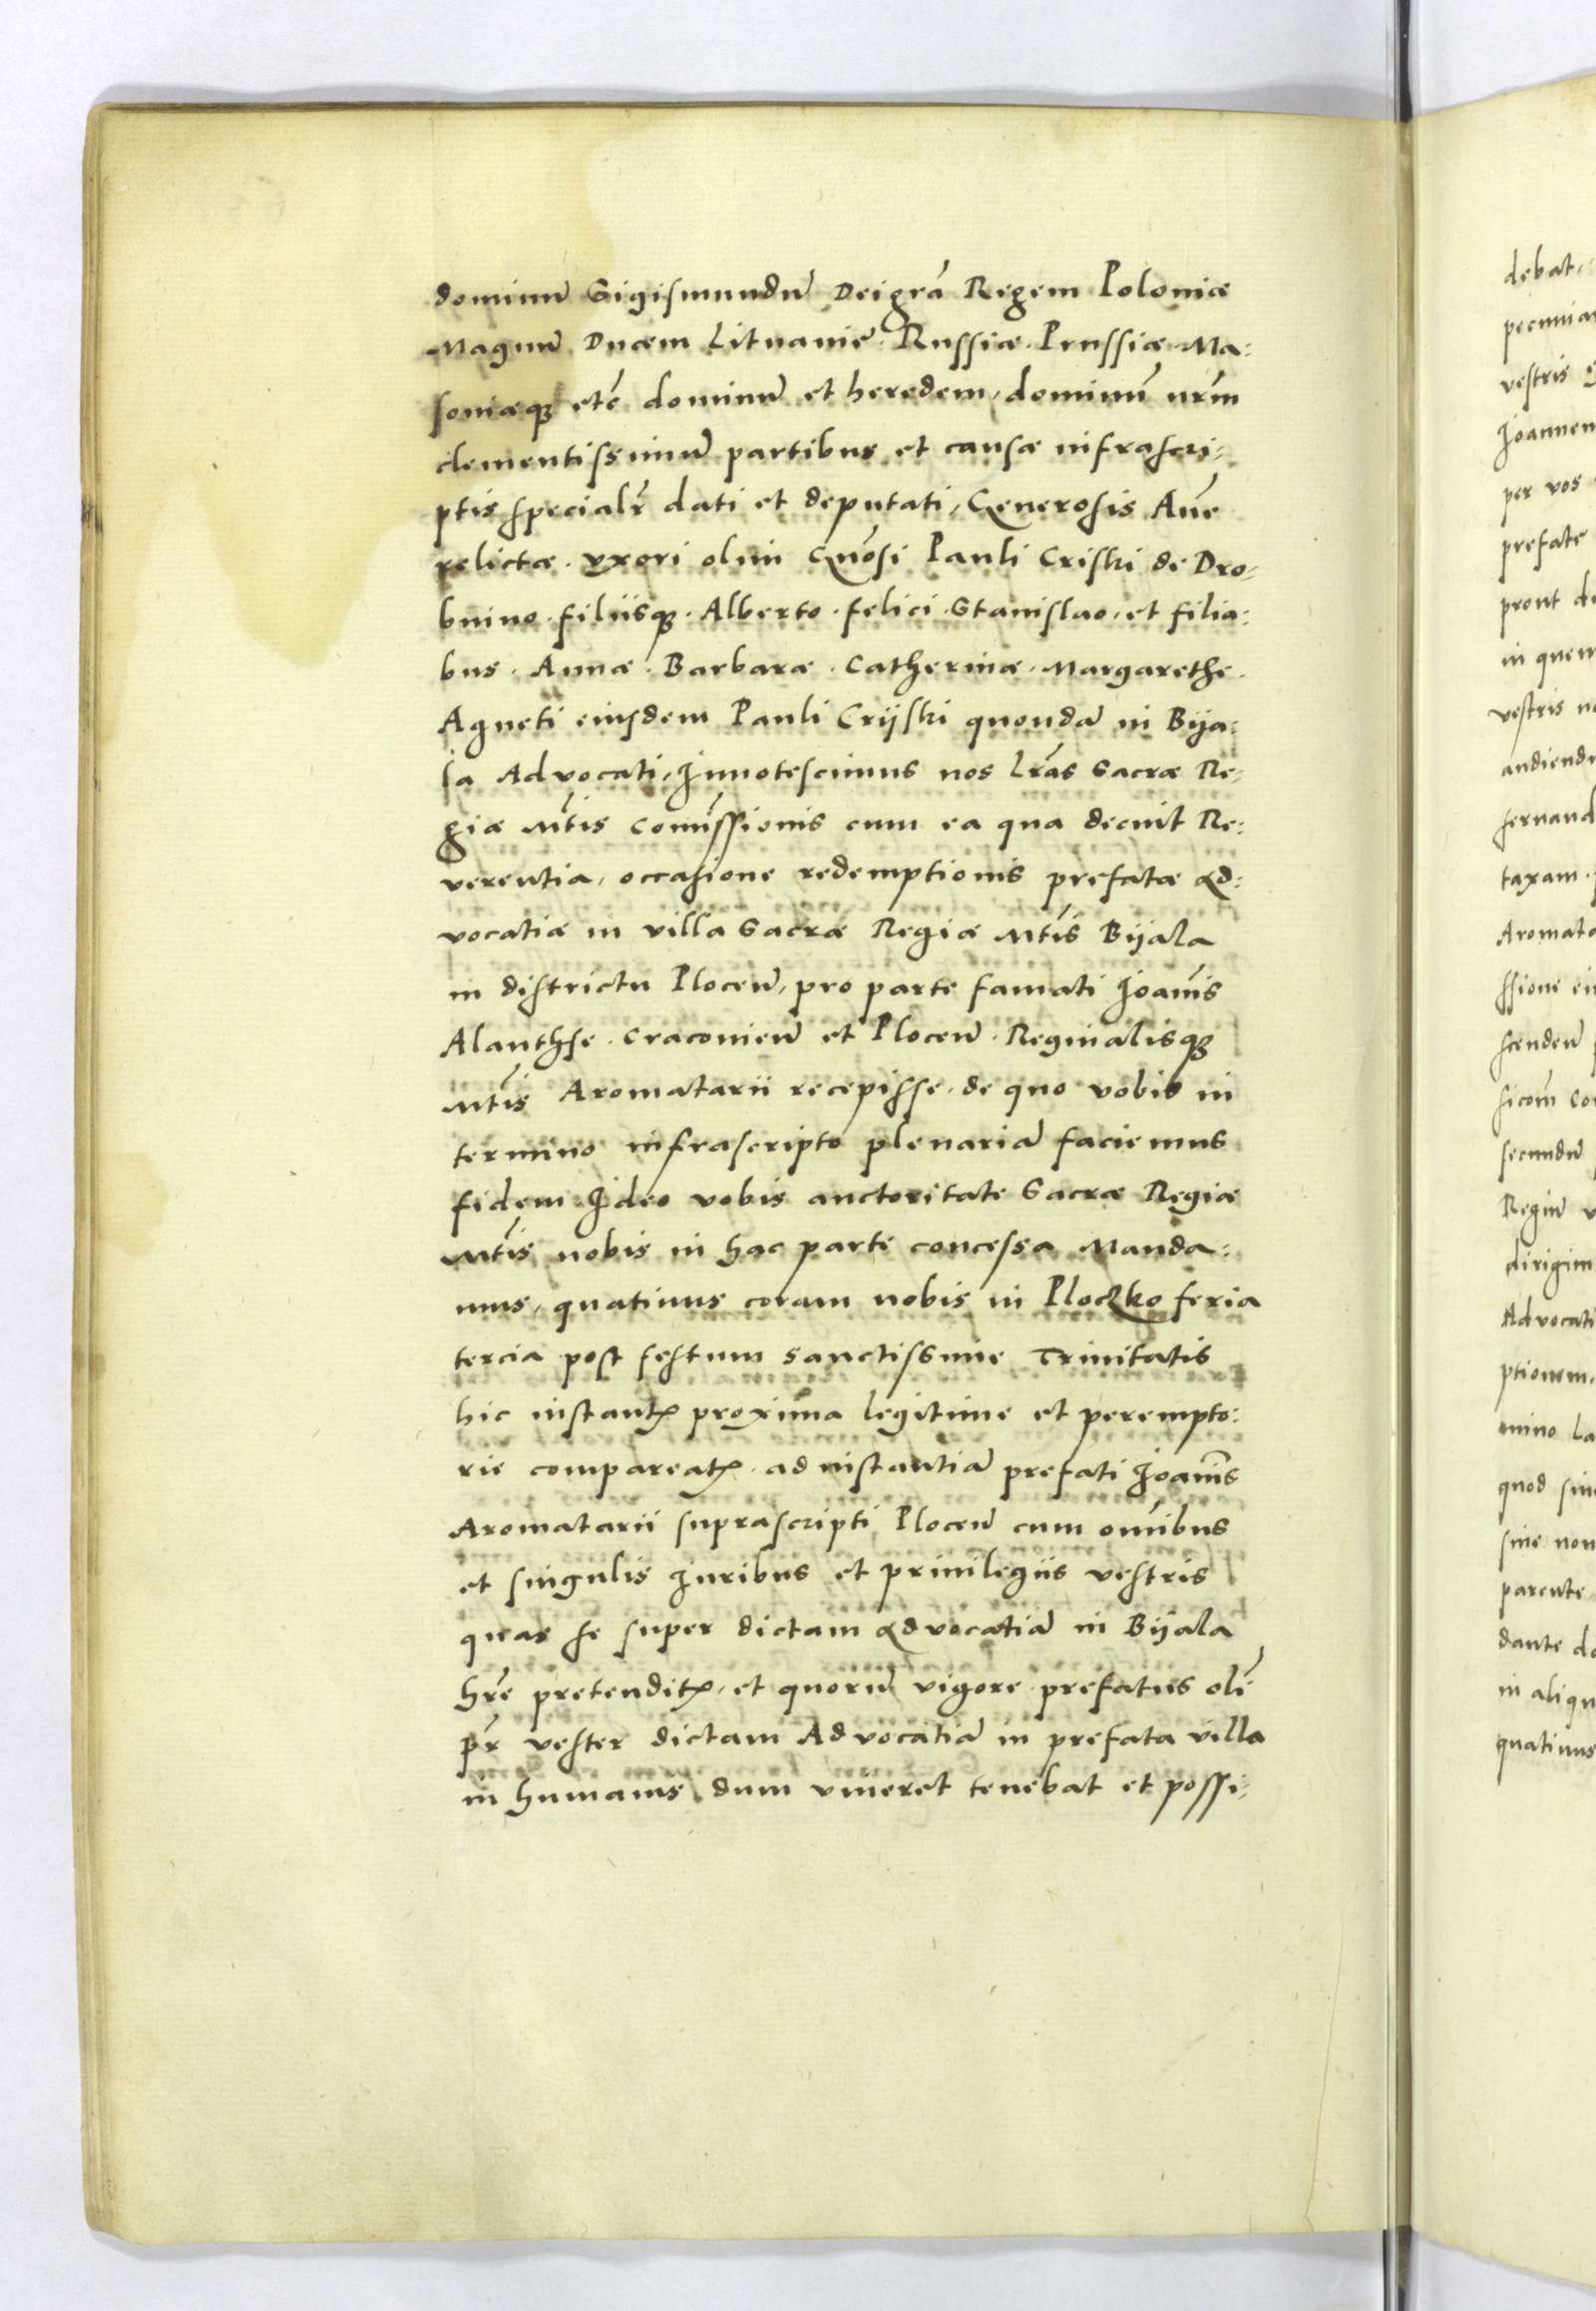 dominū Sigismundū Dei grā Regem Poloniæ
Magnū Ducem Lituaniē. Russiæ. Prussiæ. Ma:
soviæq3 etč dominū et heredem, dominū nrm̄
clementissimū partibus et causæ infrascri:
ptis specialr̄ dati et deputati, Generosis Anē
relictæ. uxori olim Gnōsi Pauli Criski de Dro:
bnino. filiisq3. Alberto. felici. Stanislao, et filia:
bus. Annæ. Barbaræ. Catherinæ. Margarethe.
Agneti eiusdem Pauli Crijski quondā in Bija:
la Advocati, Innotescimus nos Lrās Sacræ Re:
giæ Mt̄is Comm̄issionis cum ea qua decuit Re:
verentia, occasione redemptionis prefatæ Ad:
vocatiæ in villa Sacræ Regiæ Mt̄is Bijala
in districtu Plocen̄, pro parte famati Joānis
Alanthse. Cracovien̄ et Plocen̄. Reginalisq3
Mt̄is Aromatarii recepisse, de quo vobis in
termino infrascripto plenariā faciemus
fidem Ideo vobis auctoritate Sacræ Regiæ
Mt̄is nobis in hac parte concessa Manda:
mus, quatinus coram nobis in Ploczko feria
tercia post festum sanctissime Trinitatis
hic instant~ proxima legitime et perempto:
rie compareat~. ad instantiā prefati Joānis
Aromatarii suprascripti Plocen̄ cum om̄ibus
et singulis Juribus et privilegiis vestris
quas se super dictam Advocatiā in Bijala
hr̄e pretendit~, et quorū vigore prefatus olē
pr̄ vester dictam Advocatiā in prefata villa
in humanis dum viveret tenebat et possi:
debat,
vestris
per vos
prefate
prout de
in quem
vestris
taxam.
Aromata
secundū
Regiū
dirigim
Advocati
ptionem,
mino la
quod sin
sive non
parente
dante do
in aliqu
quatinus